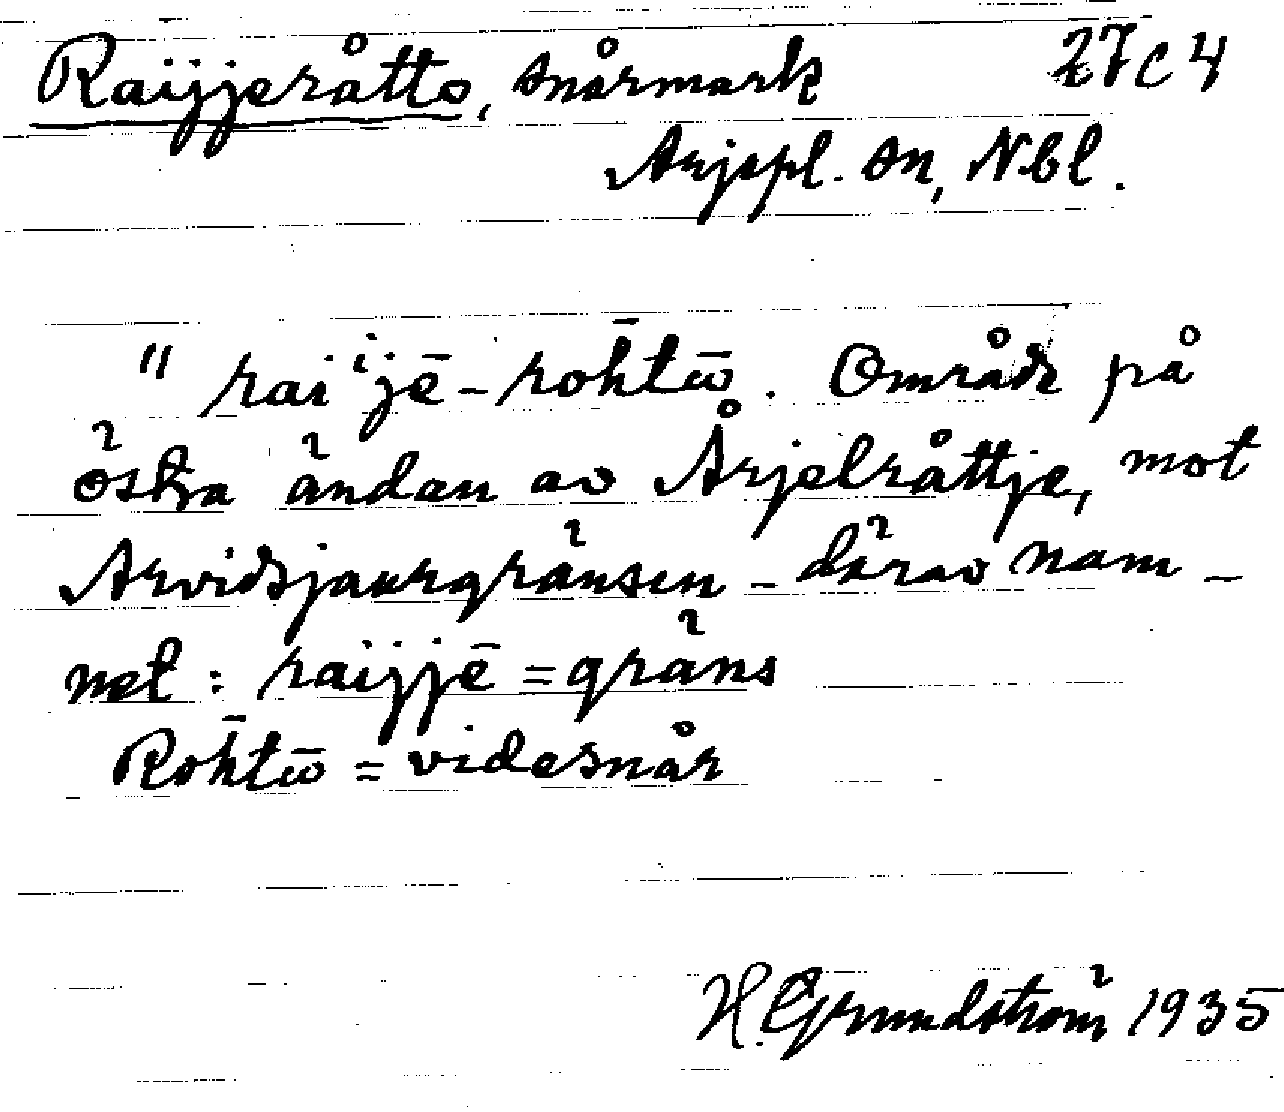 Raijjeråtto, snårmark 27c4
Arjepl. sn, Nbl.
" rai'jē-rohtū. Område på
östra ändan av Årjelråttje, mot
Arvidsjaurgränsen - därav nam-
net: raijjē = gräns
Rohtū = videsnår
H. Grundström 1935